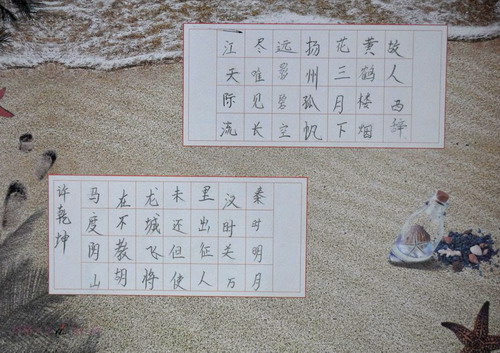 故人西辞
黄鹤楼烟
花三月下
扬州孤帆
远影碧空
尽唯见长
江天际流
秦时明月
汉时关万
里出征人
未还但使
龙城飞将
在不教胡
马度阴山
许乾坤